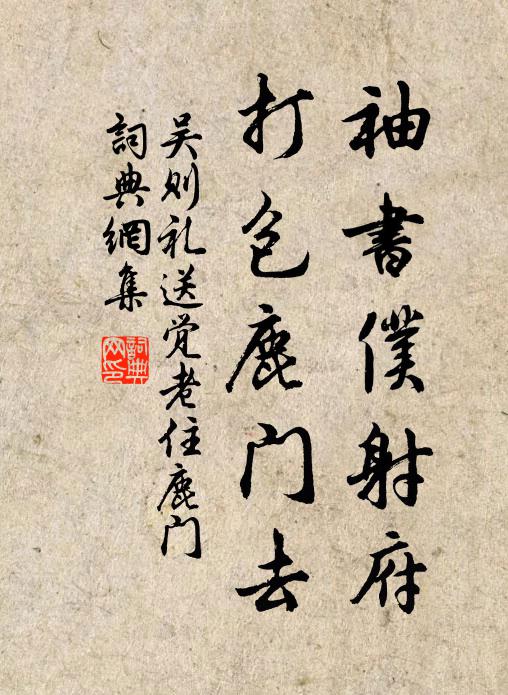 袖書僕射府
打包鹿门去
吴则礼送觉老住鹿门
詞典網集
詞典网印